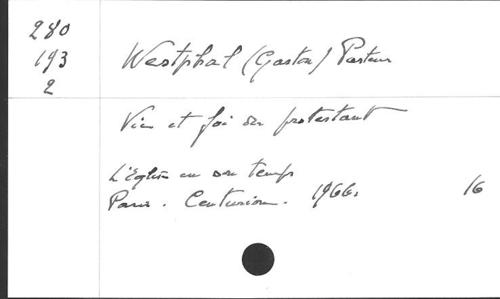 280
193
2
Westphal (Gaston) Pasteur
Vie et foi du protestant
L'Eglise en son temps
Paris. Centurion. 1966. 16